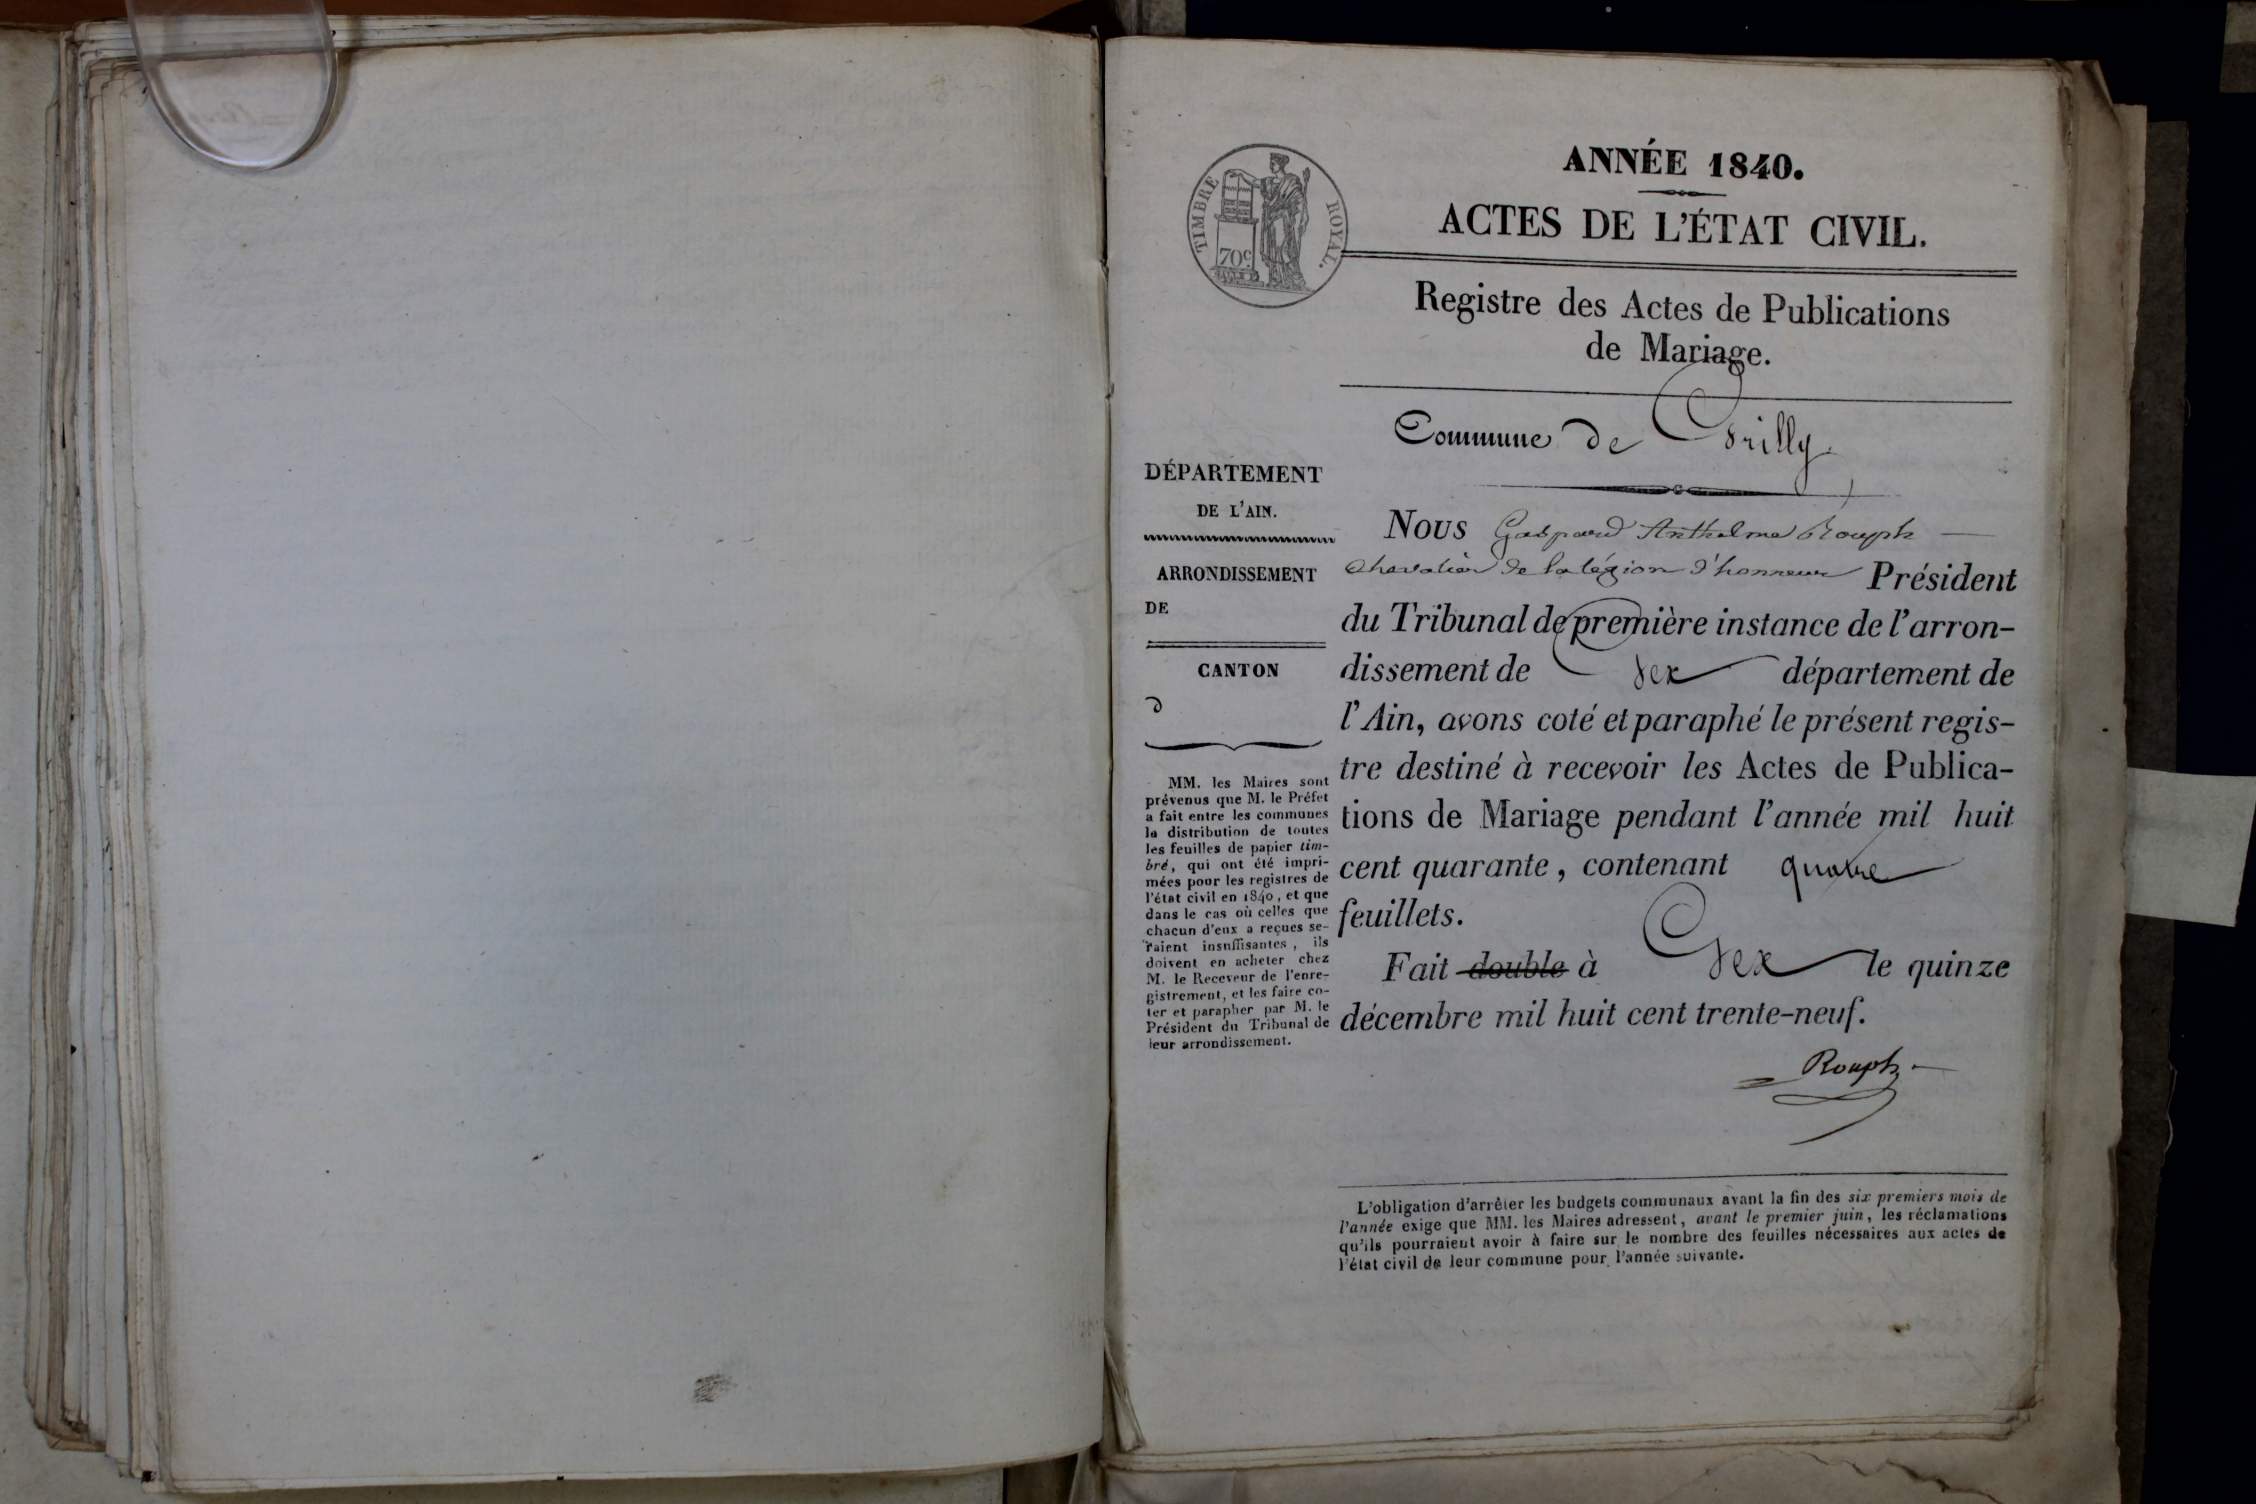 ANNÉE 1840.
ACTES DE L'ÉTAT CIVIL.
TIMBRE ROYAL.
70c
Registre des Actes de Publications
de Mariage.
Commune de Grilly
DÉPARTEMENT
DE L'AIN.
ARRONDISSEMENT
DE
CANTON
d
MM. les Maires sont
prévenus que M. le Préfet
a fait entre les communes
la distribution de toutes
les feuilles de papier tim-
bré, qui ont été impri-
mées pour les registres de
l'état civil en 1840, et que
dans le cas où celles que
chacun d'eux a reçues se-
raient insuffisantes, ils
doivent en acheter chez
M. le Receveur de l'enre-
gistrement, et les faire co-
ter et parapher par M. le
Président du Tribunal de
leur arrondissement.
Nous Gaspard Anthelme Rouph
chevalier de la légion d'honneur Président
du Tribunal de première instance de l'arron-
dissement de Gex département de
l'Ain, avons coté et paraphé le présent regis-
tre destiné à recevoir les Actes de Publica-
tions de Mariage pendant l'année mil huit
cent quarante, contenant quatre
feuillets.
Fait double à Gex le quinze
décembre mil huit cent trente-neuf.
Rouph
L'obligation d'arrêter les budgets communaux avant la fin des six premiers mois de
l'année exige que MM. les Maires adressent, avant le premier juin, les réclamations
qu'ils pourraient avoir à faire sur le nombre des feuilles nécessaires aux actes de
l'état civil de leur commune pour l'année suivante.